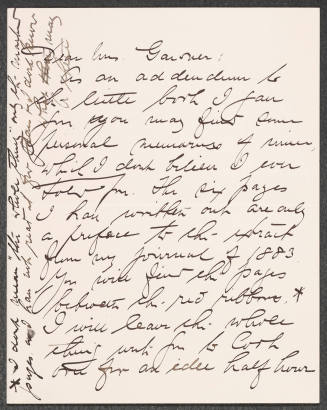 Dear Mrs Gardner:
As an addendum to
the little book I gave
you you may find some
personal memories of mine,
which I don't believe I ever
told you. The six pages
I have written out are only
a preface to the extract
from my journal of 1883
You will find the pages
between the red ribbons. *
I will leave the whole
thing with you to look
over for an idle half hour
* I don't mean "the whole thing" only the marked
pages